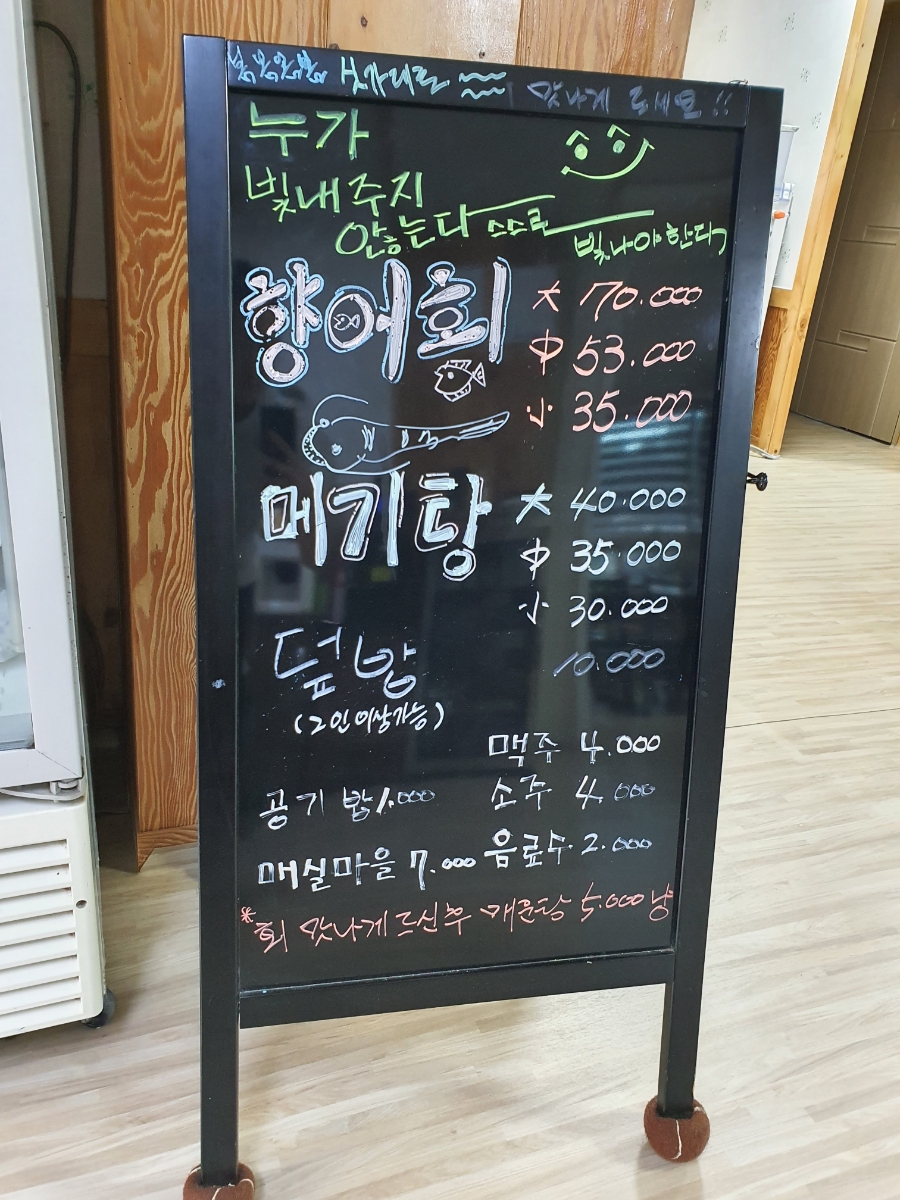 맛나게 드세요!!
누가
빛내 주지
않는다 스스로 빛나야 한다
향어회 大 70.000
中 53.000
小 35.000
메기탕 大 40.000
中 35.000
小 30.000
덮밥 10.000
(2인이상가능)
맥주 4.000
공기밥 1.000 소주 4.000
매실마을 7.000 음료수 2.000
*회 맛나게 드신 후 매운탕 5.000냥